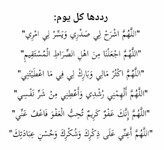 رددها كل يوم:
"اللَّهُمَّ اشْرَحْ لِي صَدْرِي وَيَسِّرْ لِي امْرِي"
"اللَّهُمَّ اجْعَلْنَا مِنَ اهْلِ الصِّرَاطِ الْمُسْتَقِيمِ"
"اللَّهُمَّ اكْثِرْ مَالِي وَبَارِكْ لِي فِي مَا اعْطَيْتَنِي"
"اللَّهُمَّ أَلْهِمْنِي رُشْدِي وَأَعِذْنِي مِنْ شَرِّ نَفْسِي"
"اللَّهُمَّ إِنَّكَ عَفُوٌّ كَرِيمٌ تُحِبُّ الْعَفْوَ فَاعْفُ عَنِّي"
"اللَّهُمَّ أَعِنِّي عَلَى ذِكْرِكَ وَشُكْرِكَ وَحُسْنِ عِبَادَتِكَ"